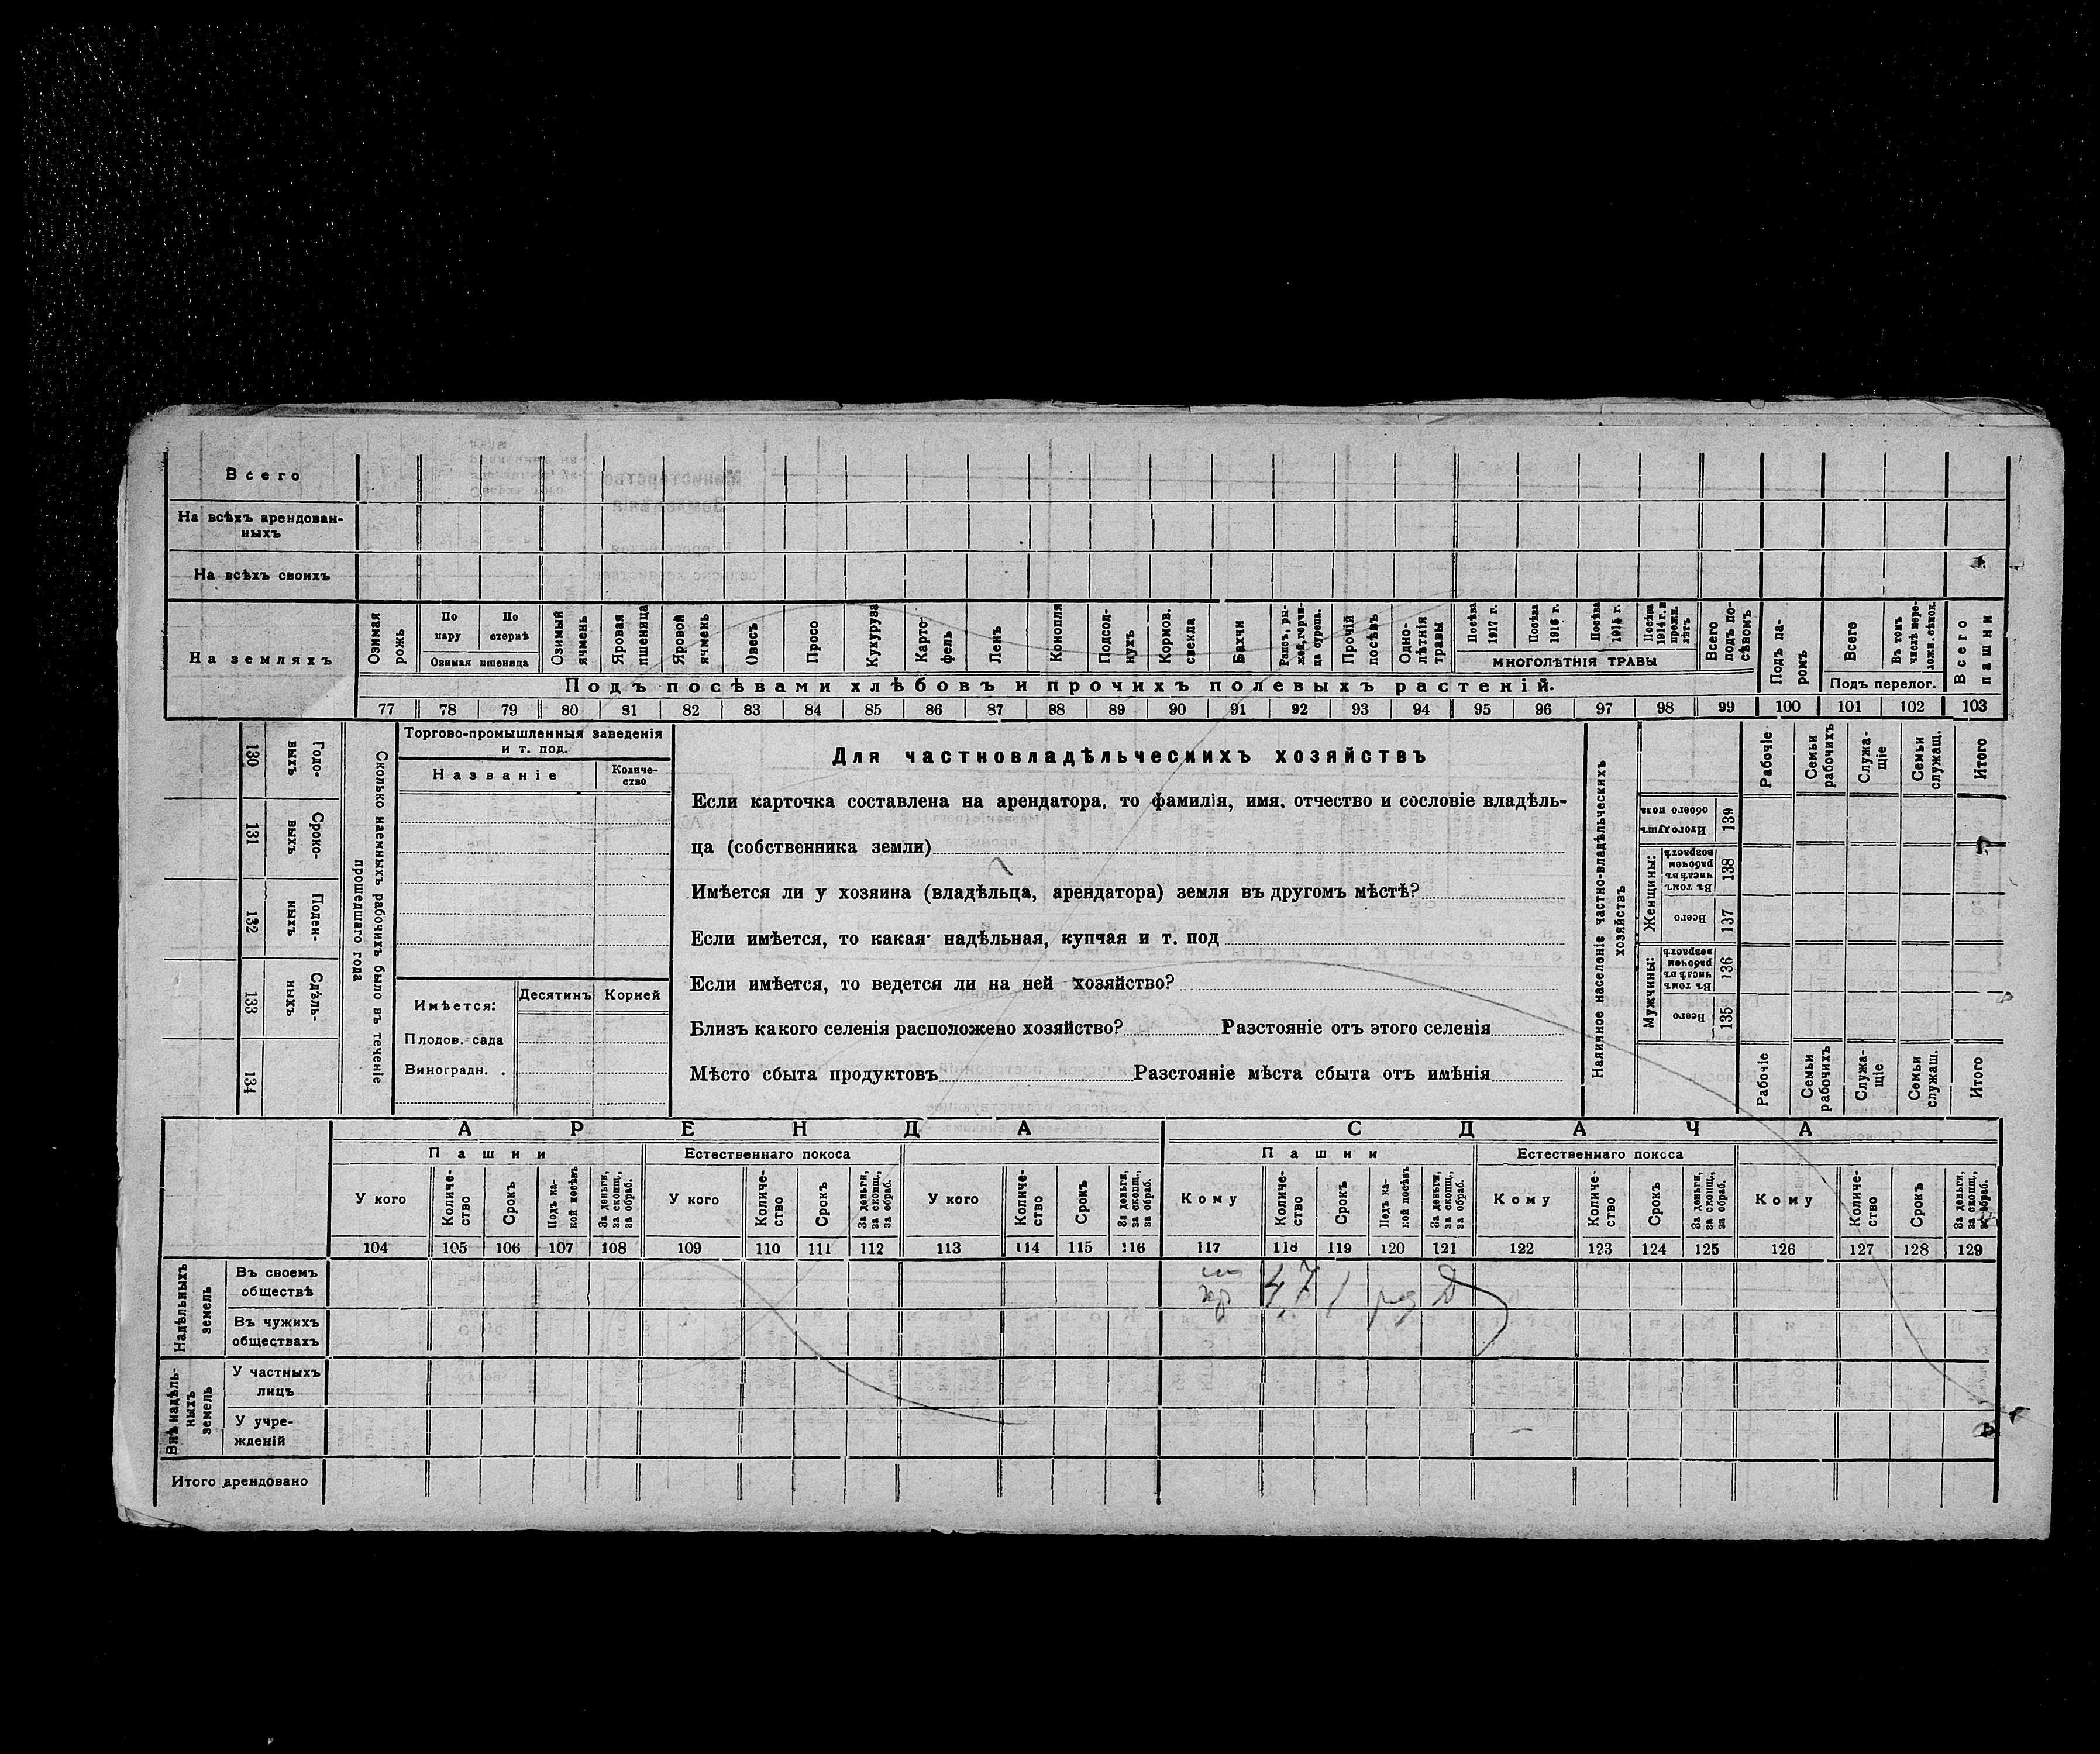 Всего
На всѣхъ арендованныхъ
На всѣхъ своихъ
На земляхъ
Озимая рожь
По пару
По стернѣ
Озимая пшеница
Озимый ячмень
Яровая пшеница
Яровой ячмень
Овесъ
Просо
Кукуруза
Картофель
Ленъ
Конопля
Подсолнухъ
Кормов. свекла
Бахчи
Рапсъ, рыжей, горчица сурепа.
Прочій посѣвъ
Однолѣтнія травы
Посѣва 1917 г.
Посѣва 1916 г.
Посѣва 1915 г.
Посѣва 1914 г. и прежн. лѣтъ
МНОГОЛѢТНІЯ ТРАВЫ
Всего подъ посѣвомъ
Подъ паромъ
Всего
Въ томъ числѣ переложн. сѣнок.
Подъ перелог.
Всего пашни
Подъ посѣвами хлѣбовъ и прочихъ полевыхъ растеній.
77 78 79 80 81 82 83 84 85 86 87 88 89 90 91 92 93 94 95 96 97 98 99 100 101 102 103
130 Годовыхъ
131 Сроковыхъ
132 Поденныхъ
133 Сдѣльныхъ
134
Сколько наемныхъ рабочихъ было въ теченіе прошедшаго года
Торгово-промышленныя заведенія
и т. под.
Названіе
Количество
Имѣется: Десятинъ Корней
Плодов. сада
Виноградн. .
Для частновладѣльческихъ хозяйствъ
Если карточка составлена на арендатора, то фамилія, имя, отчество и сословіе владѣль-
ца (собственника земли)
Имѣется ли у хозяина (владѣльца, арендатора) земля въ другомъ мѣстѣ?
Если имѣется, то какая· надѣльная, купчая и т. под
Если имѣется, то ведется ли на ней хозяйство?
Близъ какого селенія расположено хозяйство? Разстояніе отъ этого селенія
Мѣсто сбыта продуктовъ Разстояніе мѣста сбыта отъ имѣнія
Наличное населеніе частно-владѣльческихъ хозяйствъ
Рабочіе
Семьи рабочихъ
Служащіе
Семьи служащ.
Итого
Итого душъ обоего пола 139
Женщины:
Въ томъ числѣ въ рабочемъ возрастѣ 138
Всего 137
Мужчины:
Въ томъ числѣ въ рабочемъ возрастѣ 136
Всего 135
Рабочіе
Семьи рабочихъ
Служащіе
Семьи служащ.
Итого
АРЕНДА СДАЧА
Пашни Естественнаго покоса Пашни Естественнаго покоса
У кого Количество Срокъ Подъ какой посѣвъ За деньги, за скопщ., за обраб. У кого Количество Срокъ За деньги, за скопщ., за обраб. У кого Количество Срокъ За деньги, за скопщ., за обраб. Кому Количество Срокъ Подъ какой посѣвъ За деньги, за скопщ., за обраб. Кому Количество Срокъ За деньги, за скопщ., за обраб. Кому Количество Срокъ За деньги, за скопщ., за обраб.
104 105 106 107 108 109 110 111 112 113 114 115 116 117 118 119 120 121 122 123 124 125 126 127 128 129
Надѣльныхъ земель
Въ своемъ обществѣ 47 1
Въ чужихъ обществахъ
Внѣ надѣльныхъ земель
У частныхъ лицъ
У учрежденій
Итого арендовано